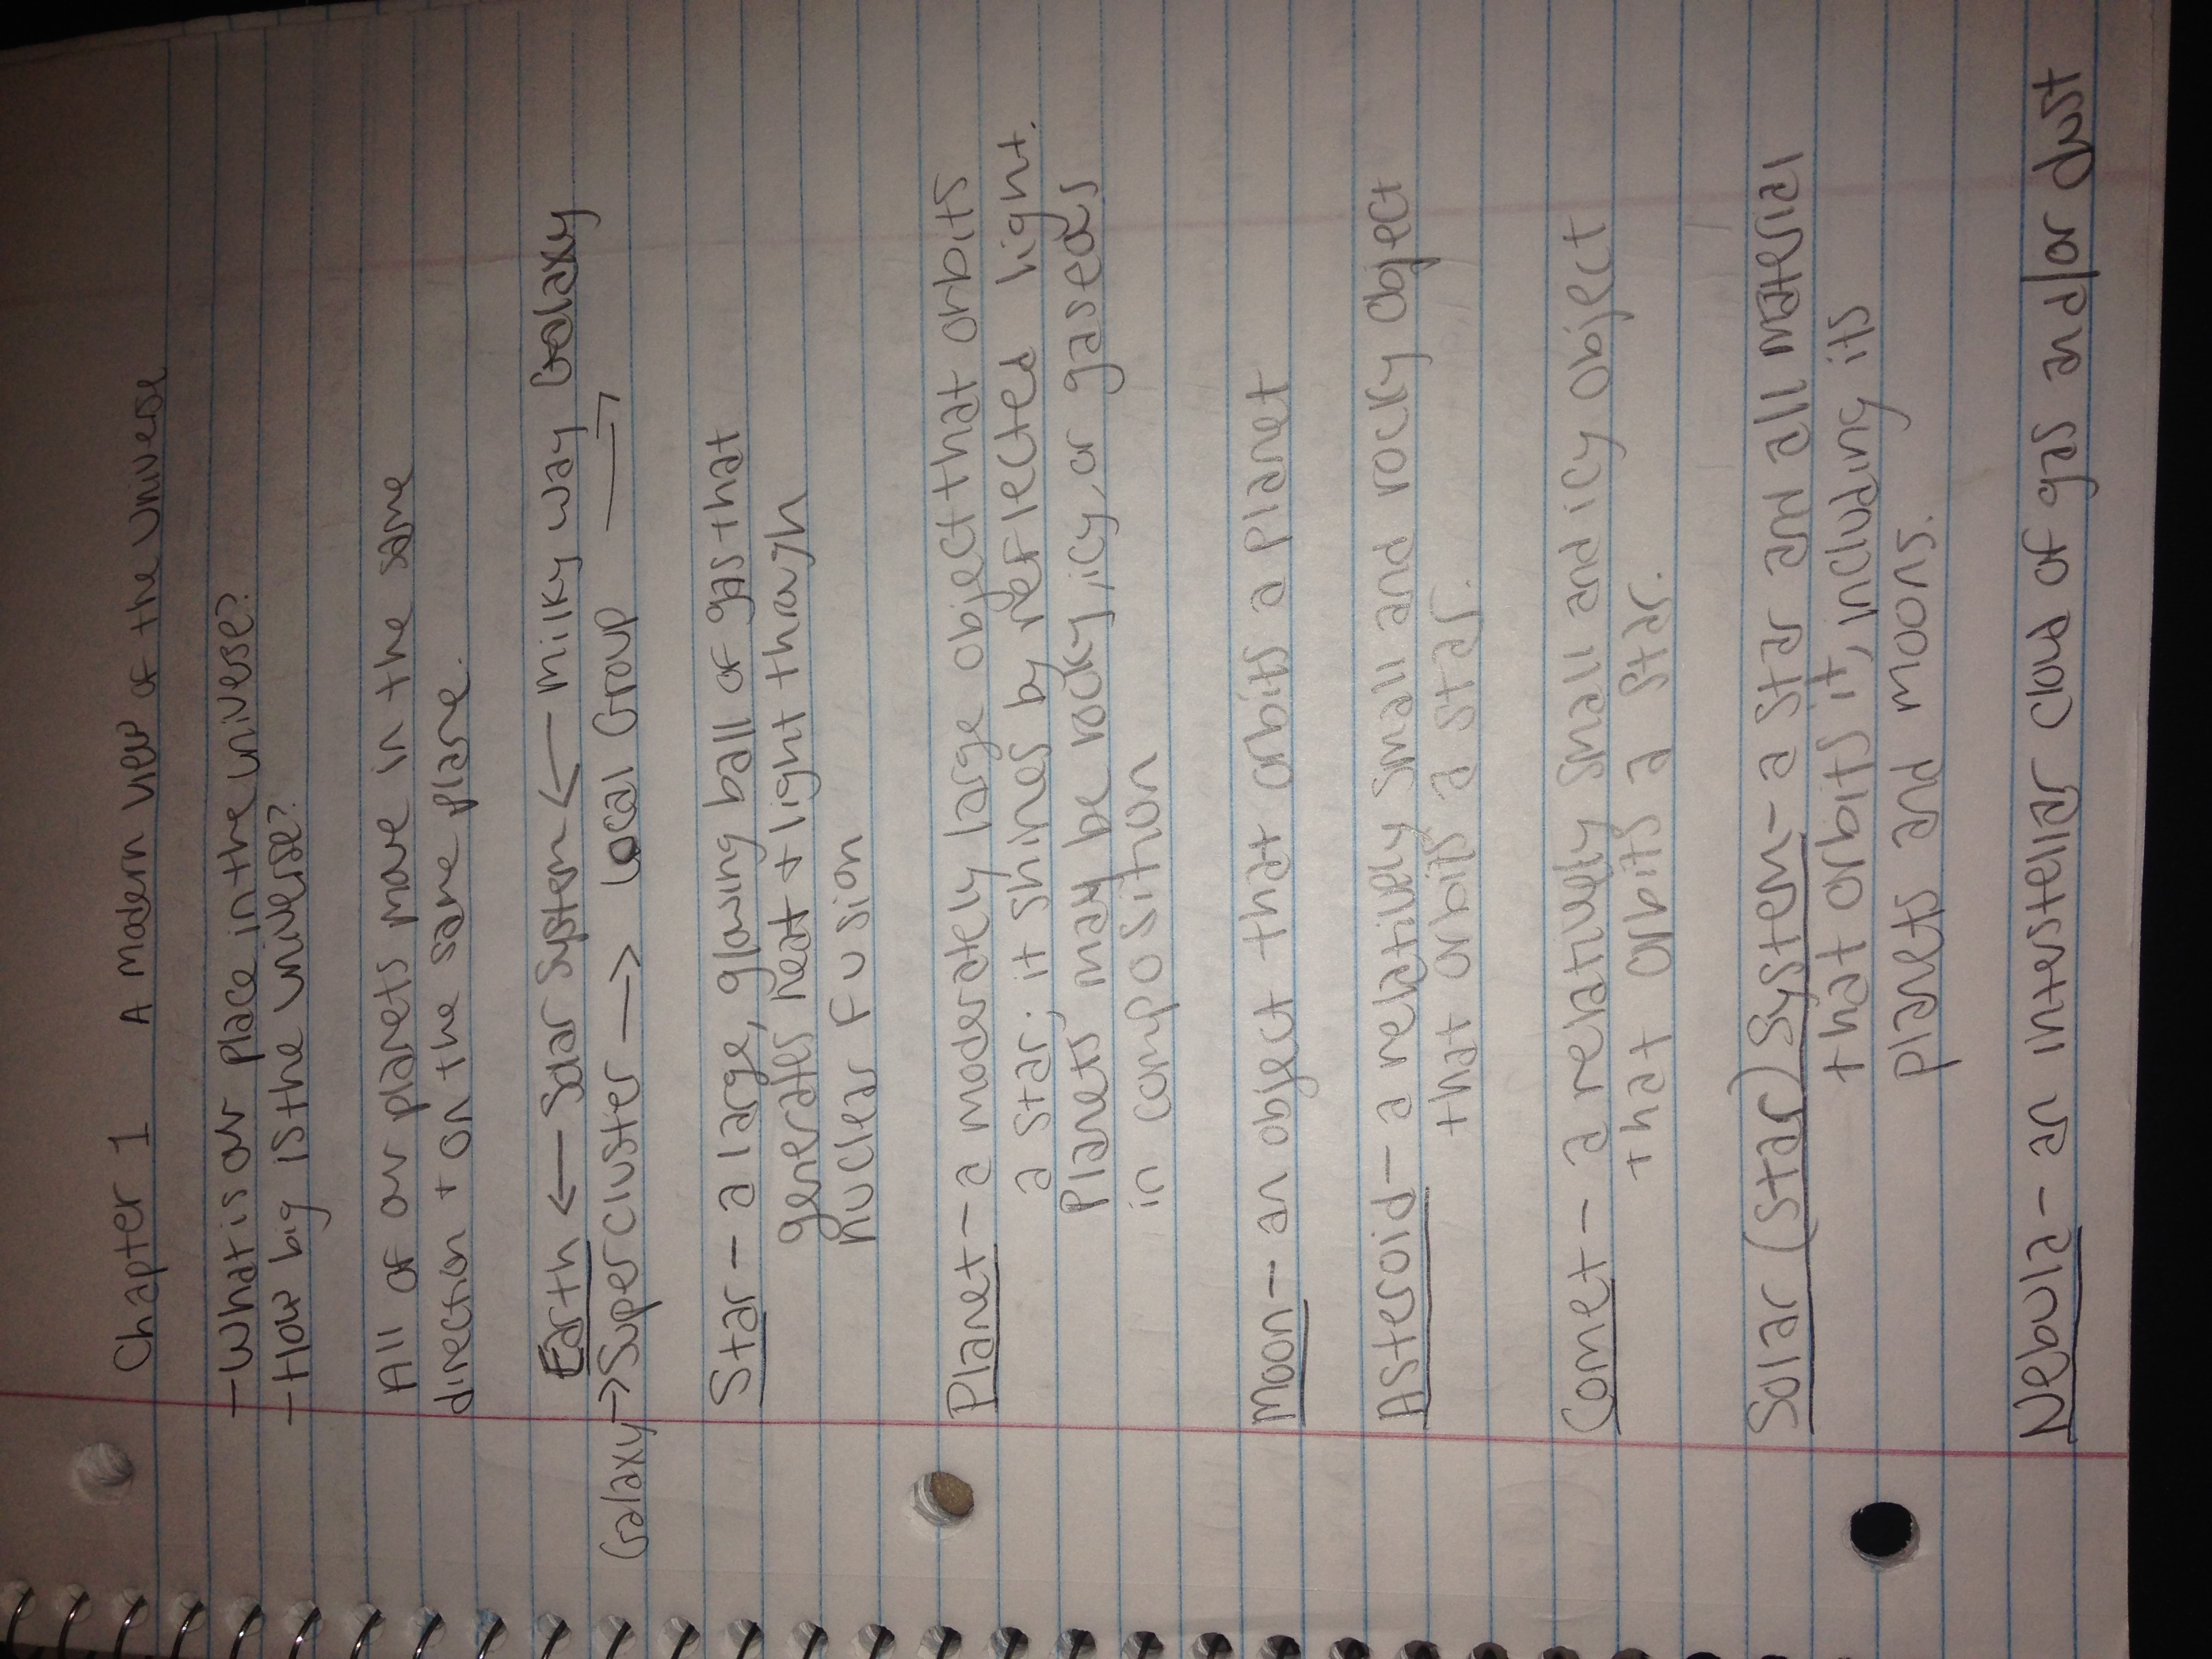 Chapter 1 A modern view of the universe
- What is our place in the universe?
- How big is the universe?
All of our planets move in the same
direction + on the same plane.
Earth ← Solar System ← Milky Way Galaxy
Galaxy → Supercluster → Local Group →
Star - a large, glowing ball of gas that
generates heat + light through
nuclear fusion
Planet - a moderately large object that orbits
a star; it shines by reflected light.
Planets may be rocky, icy, or gaseous
in composition
Moon - an object that orbits a planet
Asteroid - a relatively small and rocky object
that orbits a star.
Comet - a relatively small and icy object
that orbits a star.
Solar (Star) System - a star and all material
that orbits it, including its
planets and moons.
Nebula - an interstellar cloud of gas and/or dust